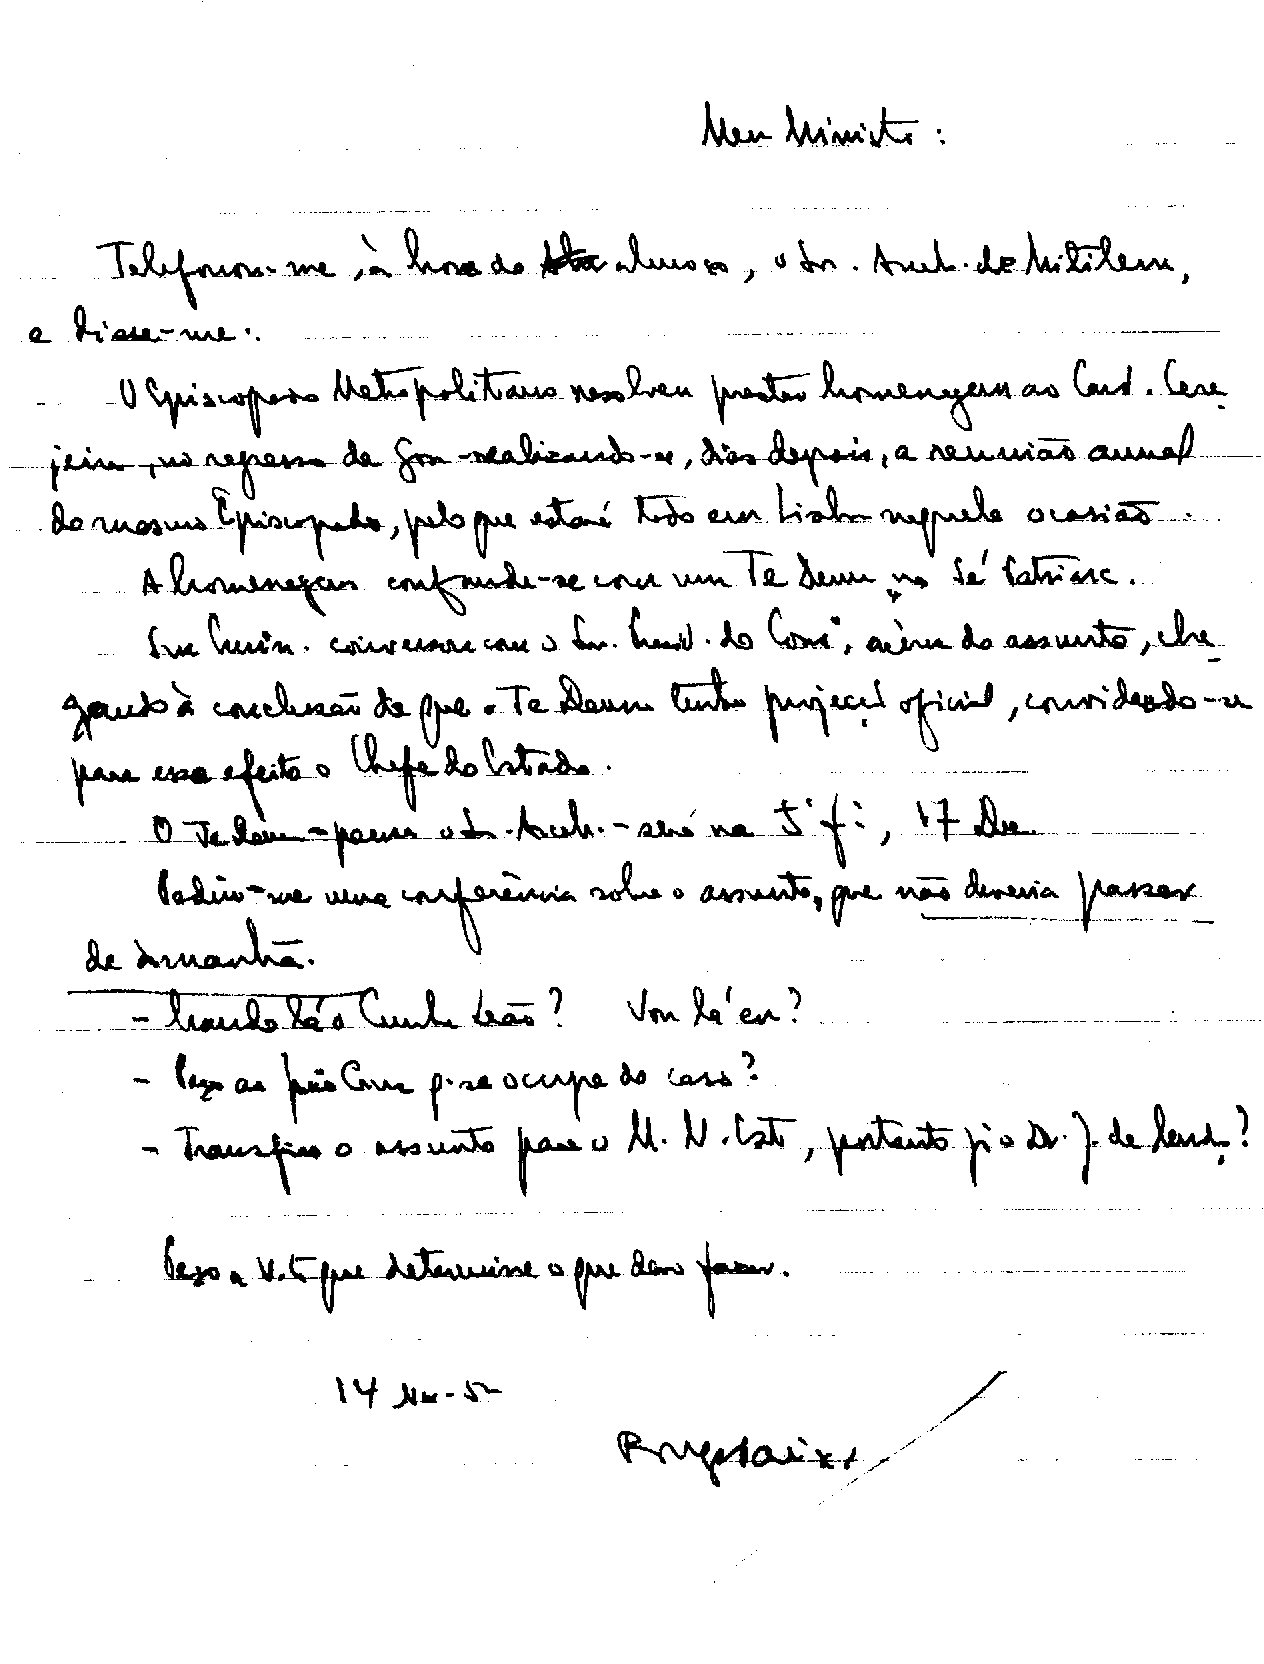 Meu Ministro:
Telefonou-me, à hora do almoço, o Sr. Arceb. de Mitilene,
e disse-me:
O Episcopado Metropolitano resolveu prestar homenagem ao Card. Cere-
jeira, no regresso de Goa - realizando-se, dias depois, a reunião anual
do mesmo Episcopado, pelo que estará todo em Lisboa naquela ocasião.
A homenagem confunde-se com um Te Deum na Sé Patriarc.
Sua Emin. conversou com o Sr. Presid. do Cons., acêrca do assunto, che-
gando à conclusão de que o Te Deum tenha projecç. oficial, convidando-se
para esse efeito o Chefe do Estado.
O Te Deum - pensa o Sr. Arceb. - será na 5ª fª, 17 Dez.
Pediu-me uma conferência sobre o assunto, que não deveria passar
de amanhã.
- Mando lá o Cunha Leão? Vou lá eu?
- Peço ao Cruz p. se ocupe do caso?
- Transfiro o assunto para o M. N. Estr, portanto p. o Dr. J. de
Peço a V. Exª que determine o que devo fazer.
14 Nov-52